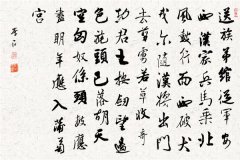 送族弟綰從軍安
西漢家兵馬乘北
風鼓行而西破犬
戎爾隨漢將出門
去剪虜若草收奇
功君王按劍望邊
色旄頭已落胡天
空匈奴係頸數應
盡明年應入蒲萄
宮
李白